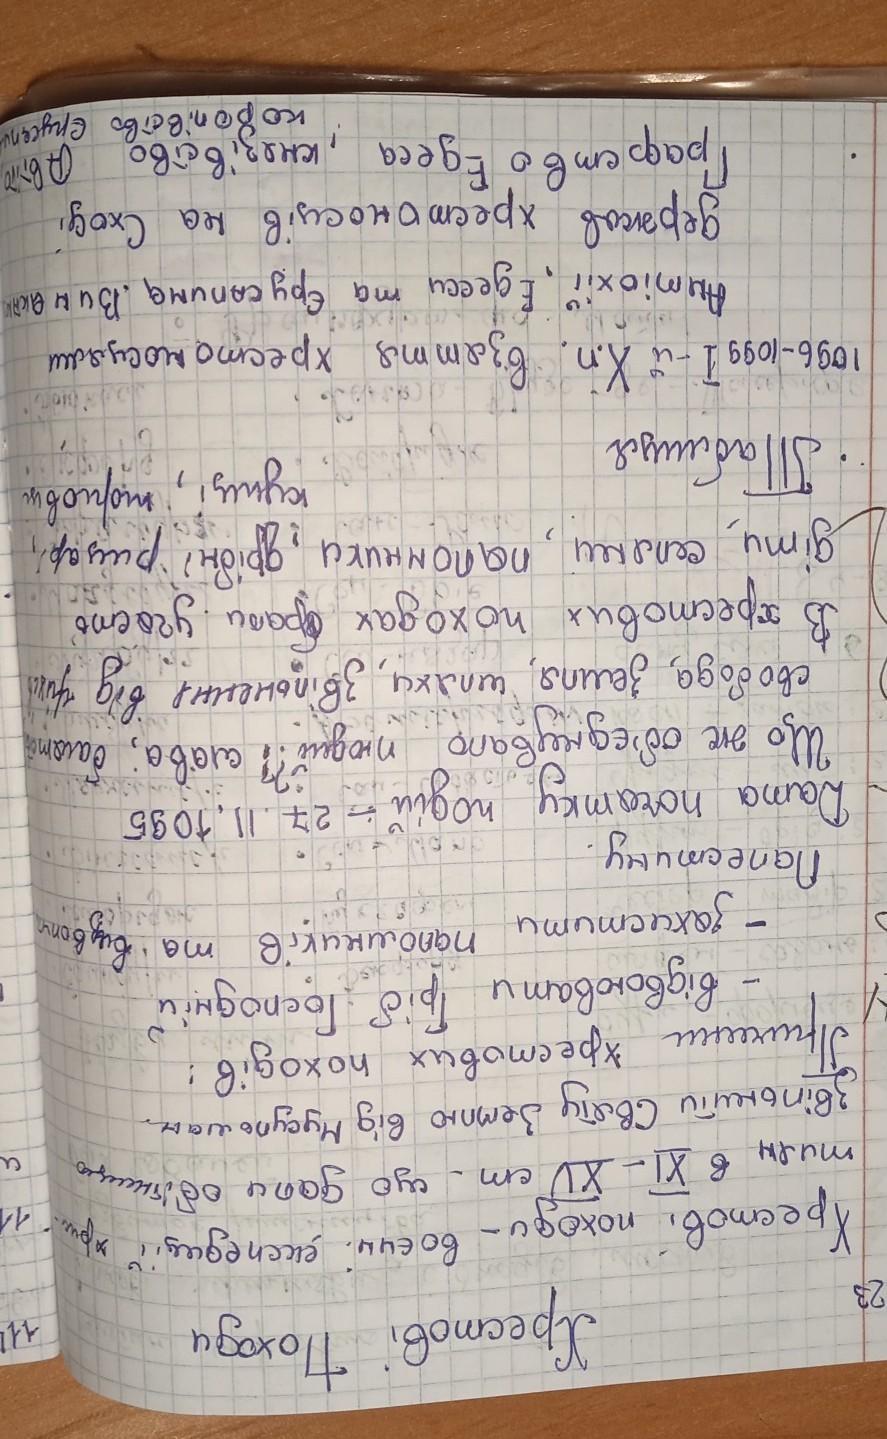 23
Хрестові Походи
Хрестові походи - воєнні експедиції хри-
тиян в XI - XV ст - що дали обітницю
звільнити Святу Землю від Мусульман.
Причини хрестових походів:
- відвоювати Гріб Господній
- захистити паломників та
Палестину.
Дата початку подій - 27.11.1095
Що же обєднувало людей? слава,
свобода, земля, шляхи, звільнення від
В хрестових походах брали участь
діти, селяни, паломники, дрібні рицарі,
купці,
Таблиця
1096-1099 I-й Х.п. взяття хрестоносцями
Антіохії, Едесси та Єрусалима. Виник
держав хрестоносців на Сході
Графство Едеса, князівство
королівство Єрусалим